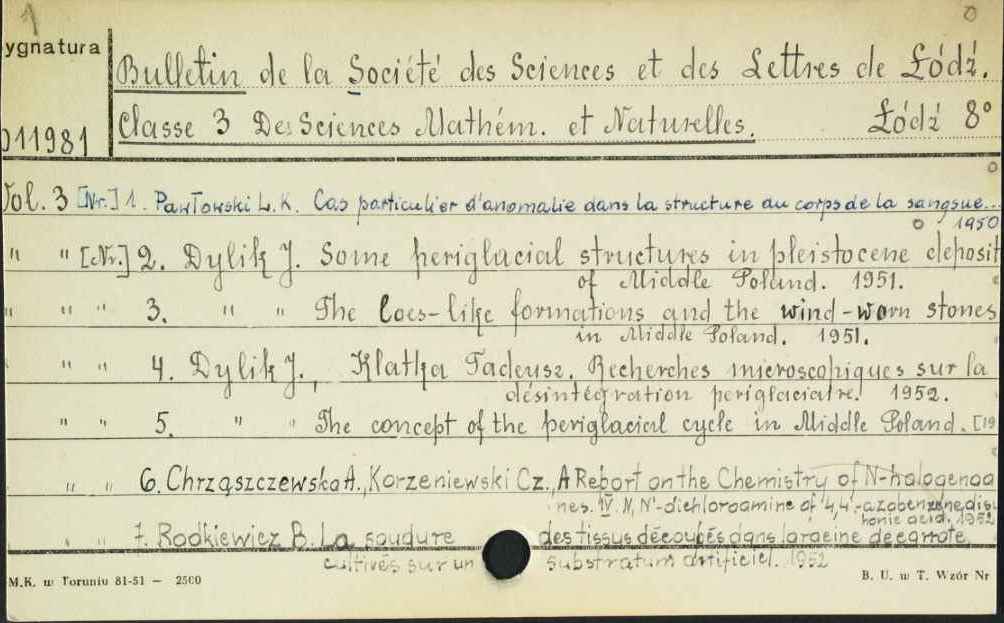 1 0
ygnatura
Bulletin de la Société des Sciences et des Lettres de Łódź.
011981 Classe 3 Des Sciences Mathém. et Naturelles. Łódź 8°
0
Vol. 3 [Nr.] 1. Pawłowski L.K. Cas particulier d'anomalie dans la structure du corps de la sangsue...
0 1950
" " [Nr.] 2. Dylik J. Some periglacial structures in pleistocene deposit
of Middle Poland. 1951.
" " " 3. " " The loes-like formations and the wind-worn stones
in Middle Poland. 1951.
" " 4. Dylik J., Klatka Tadeusz. Recherches microscopiques sur la
désintégration periglaciaire. 1952.
" " 5. " " The concept of the periglacial cycle in Middle Poland. [19
" " 6. Chrząszczewska A., Korzeniewski Cz., A Report on the Chemistry of N-halogenoa
nes. IV. N,N'-dichloroamine of 4,4'-azobenzenedisu
honic acid. 1952
" " 7. Rodkiewicz B. La soudure des tissus découpés dans laracine decarrote
cultivés sur un substratum artificiel. 1952
M.K. w Toruniu 81-51 — 2500 B. U. w T. Wzór Nr